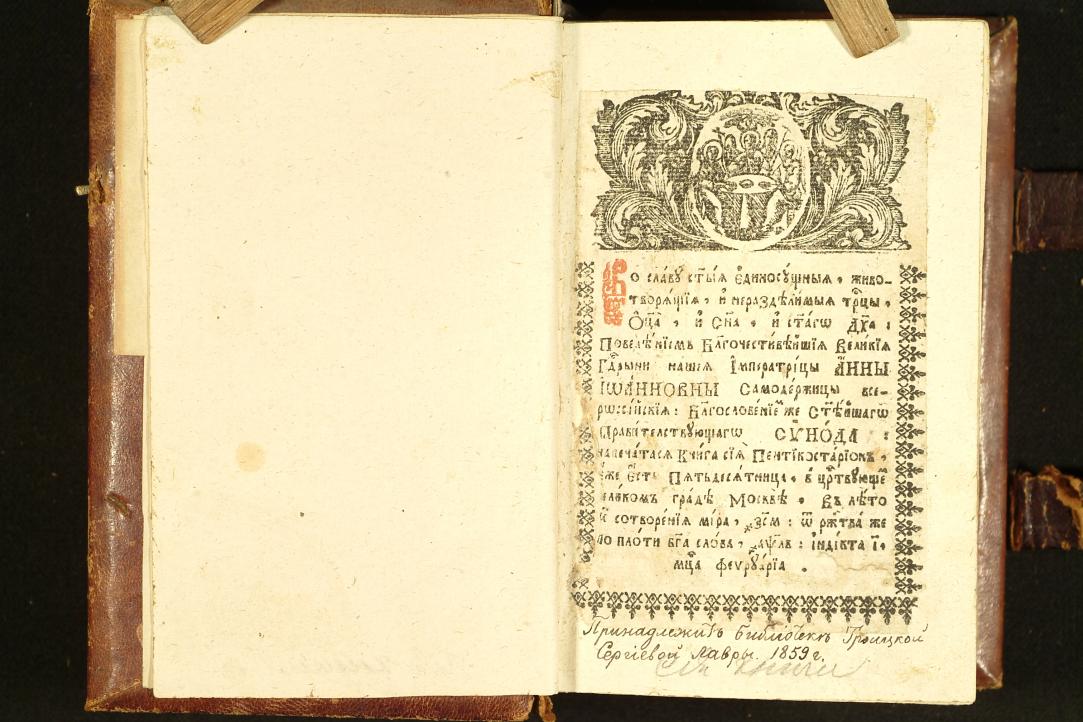 Во сла́вꙋ ст҃ы́ѧ є҆диносꙋ́щныѧ, живо-
творѧ́щїѧ, и҆ нераздѣли́мыѧ трⷪ҇цы,
Ѻ҆ц҃а̀, и҆ Сн҃а, и҆ ст҃а́гѡ Дх҃а:
Повелѣ́нїемъ Бл҃гочести́вѣйшїѧ Вели́кїѧ
Гдⷭ҇ры́ни на́шеѧ І҆мператрі́цы А҆́ННЫ
І҆ѠА́ННОВНЫ Самоде́ржицы все-
рѡссі́йскїѧ: Бл҃гослове́нїе́мже Ст҃ѣ́йшагѡ
Прави́телствꙋющагѡ СѴНО́ДА:
напеча́тасѧ Кни́га сїѧ̀ Пентікоста́рїонъ,
є҆́же є҆́сть Пѧтьдесѧ́тница, в̾ црⷭ҇твꙋющемъ
вели́комъ гра́дѣ Москвѣ̀, Въ лѣ́то
ѿ сотворе́нїѧ мі́ра, ҂зс҃м: ѿ ржⷭ҇тва́ же
по пло́ти бг҃а сло́ва, ҂аѱл҃в: і҆ндїкта і҃,
мцⷭ҇а феврꙋа́рїа.
Принадлежитъ библіотекѣ Троицкой
Сергіевой лавры. 1859 г.
книги